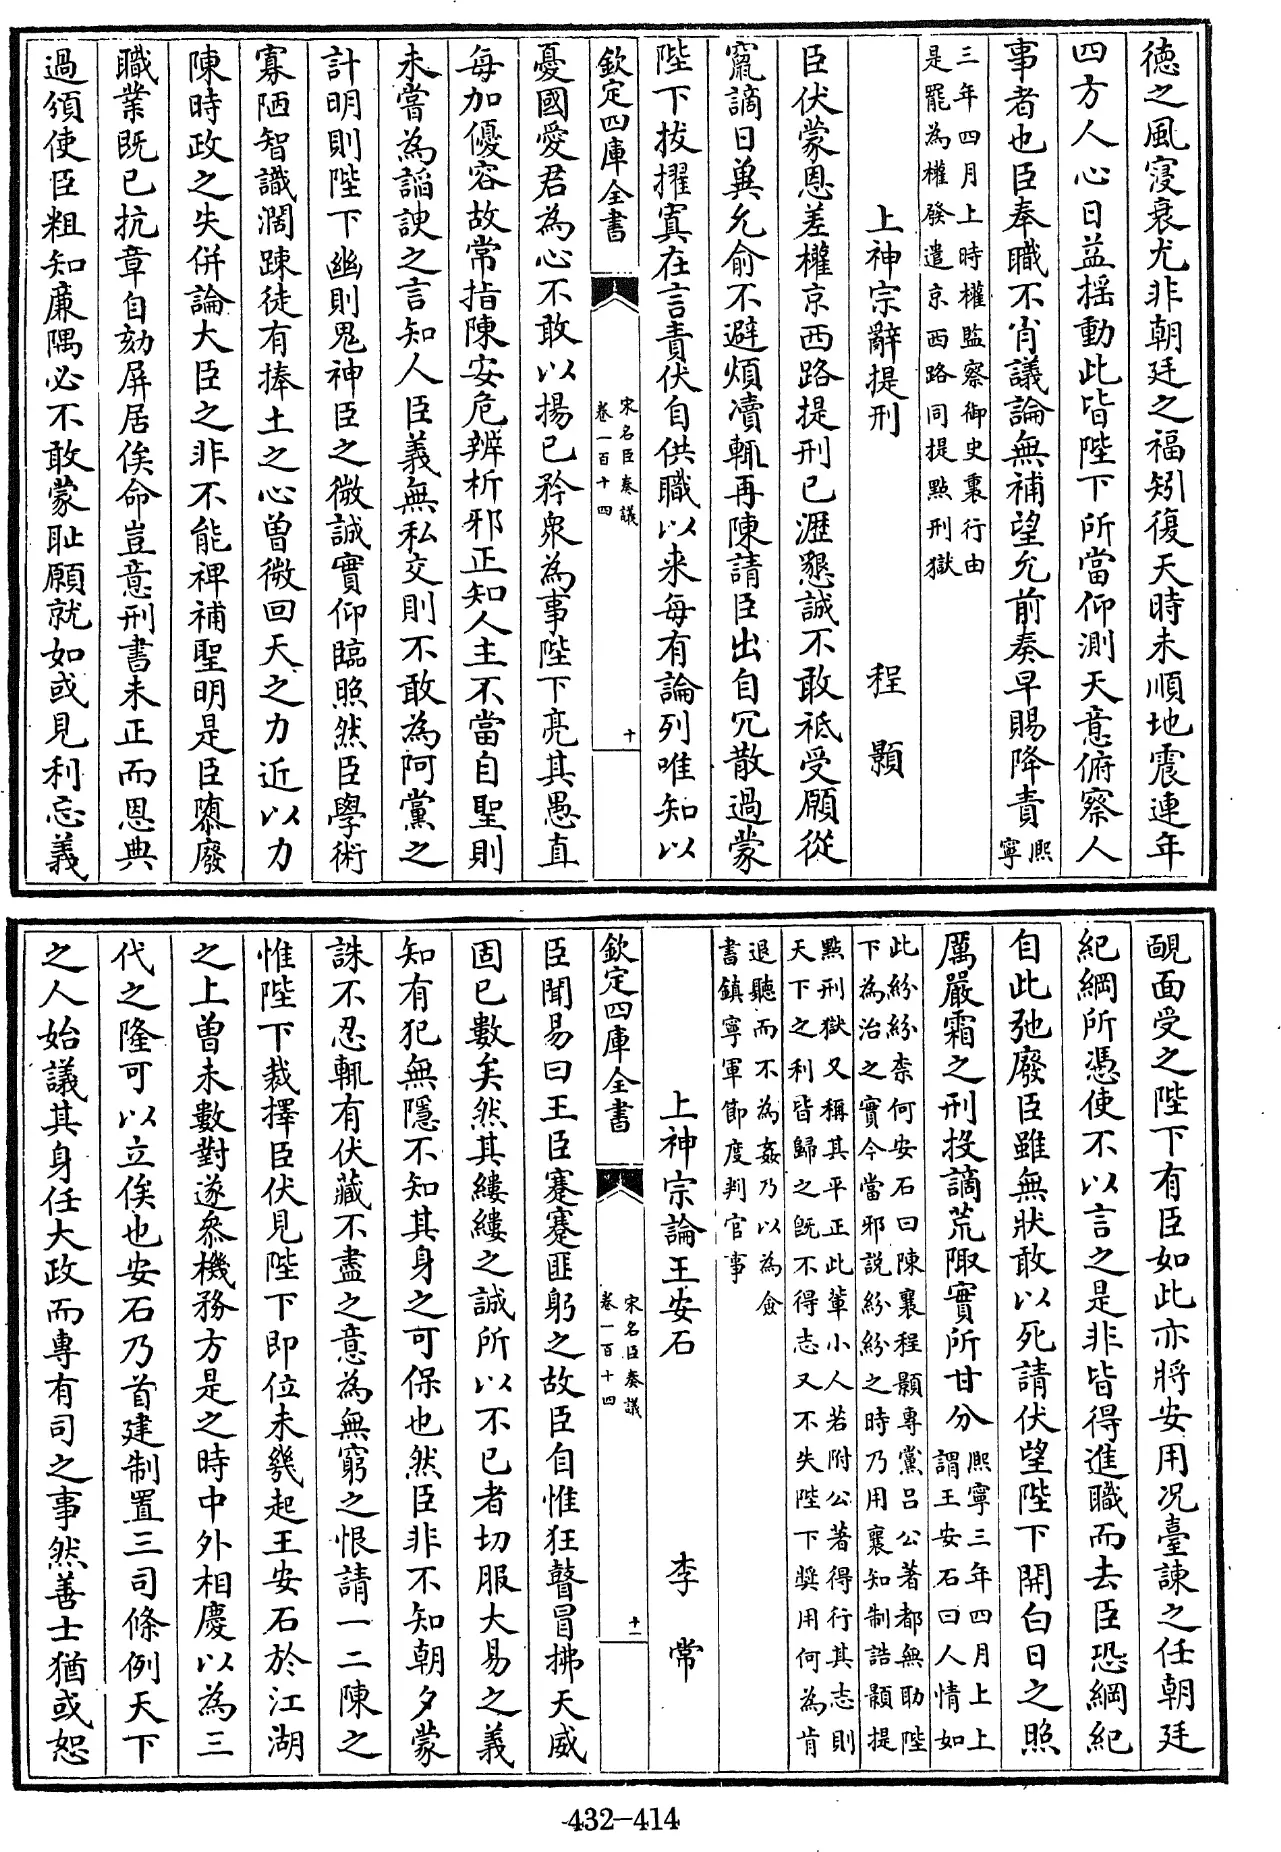 德之風寖衰尤非朝廷之福矧復天時未順地震連年
四方人心日益揺動此皆陛下所當仰測天意俯察人
事者也臣奉職不肖議論無補望允前奏早賜降責熈寧
三年四月上時權監察御史裏行由
是罷為權發遣京西路同提㸃刑獄
上神宗辭提刑 程顥
臣伏蒙恩差權京西路提刑已瀝懇誠不敢祗受願從
竄謫日兾允俞不避煩瀆輒再陳請臣出自冗散過蒙
陛下拔擢寘在言責伏自供職以来每有論列唯知以
欽定四庫全書
宋名臣奏議
卷一百十四
十
憂國愛君為心不敢以揚已矜衆為事陛下亮其愚直
每加優容故常指陳安危辨析邪正知人主不當自聖則
未嘗為謟諛之言知人臣義無私交則不敢為阿黨之
計明則陛下幽則鬼神臣之微誠實仰臨照然臣學術
寡陋智識濶踈徒有捧土之心曽微回天之力近以力
陳時政之失併論大臣之非不能禆補聖明是臣隳廢
職業既已抗章自劾屏居俟命豈意刑書未正而恩典
過須使臣粗知廉隅必不敢蒙耻願就如或見利忘義
靦面受之陛下有臣如此亦將安用况臺諫之任朝廷
紀綱所憑使不以言之是非皆得進職而去臣恐綱紀
自此弛廢臣雖無狀敢以死請伏望陛下開白日之照
厲嚴霜之刑投謫荒陬實所甘分熈寧三年四月上上
謂王安石曰人情如
此紛紛柰何安石曰陳襄程顥專黨吕公著都無助陛
下為治之實今當邪説紛紛之時乃用襄知制誥顥提
㸃刑獄又稱其平正此輩小人若附公著得行其志則
天下之利皆歸之旣不得志又不失陛下奬用何為肯
退聽而不為姦乃以為僉
書鎮寧軍節度判官事
上神宗論王安石 李常
欽定四庫全書
宋名臣奏議
卷一百十四
十一
臣聞易曰王臣蹇蹇匪躬之故臣自惟狂瞽冒拂天威
固已數矣然其縷縷之誠所以不已者切服大易之義
知有犯無隱不知其身之可保也然臣非不知朝夕蒙
誅不忍輒有伏藏不盡之意為無窮之恨請一二陳之
惟陛下裁擇臣伏見陛下即位未㡬起王安石於江湖
之上曽未數對遂叅機務方是之時中外相慶以為三
代之隆可以立俟也安石乃首建制置三司條例天下
之人始議其身任大政而專有司之事然善士猶或恕
432-414